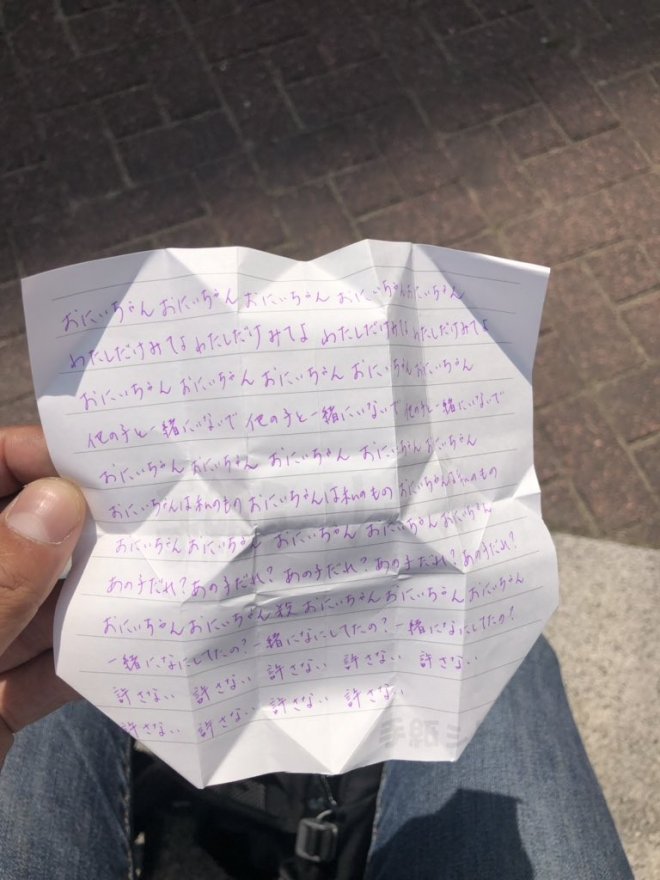 おにいちゃん おにいちゃん おにいちゃん おにいちゃんおにいちゃん
わたしだけみてよ わたしだけみてよ わたしだけみてよ わたしだけみてよ
おにいちゃん おにいちゃん おにいちゃん おにいちゃん おにいちゃん
他の子と一緒にいないで 他の子と一緒にいないで 他の子と一緒にいないで
おにいちゃん おにいちゃん おにいちゃん おにいちゃん おにいちゃん
おにいちゃんは私のもの おにいちゃんは私のもの おにいちゃんは私のもの
おにいちゃん おにいちゃん おにいちゃん おにいちゃん おにいちゃん
あの子だれ?あの子だれ? あの子だれ?あの子だれ? あの子だれ?
おにいちゃんおにいちゃん 殺 おにいちゃんおにいちゃん おにいちゃん
一緒になにしてたの?一緒になにしてたの?一緒になにしてたの?
許さない 許さない 許さない 許さない 許さない
許さない 許さない 許さない 許さない